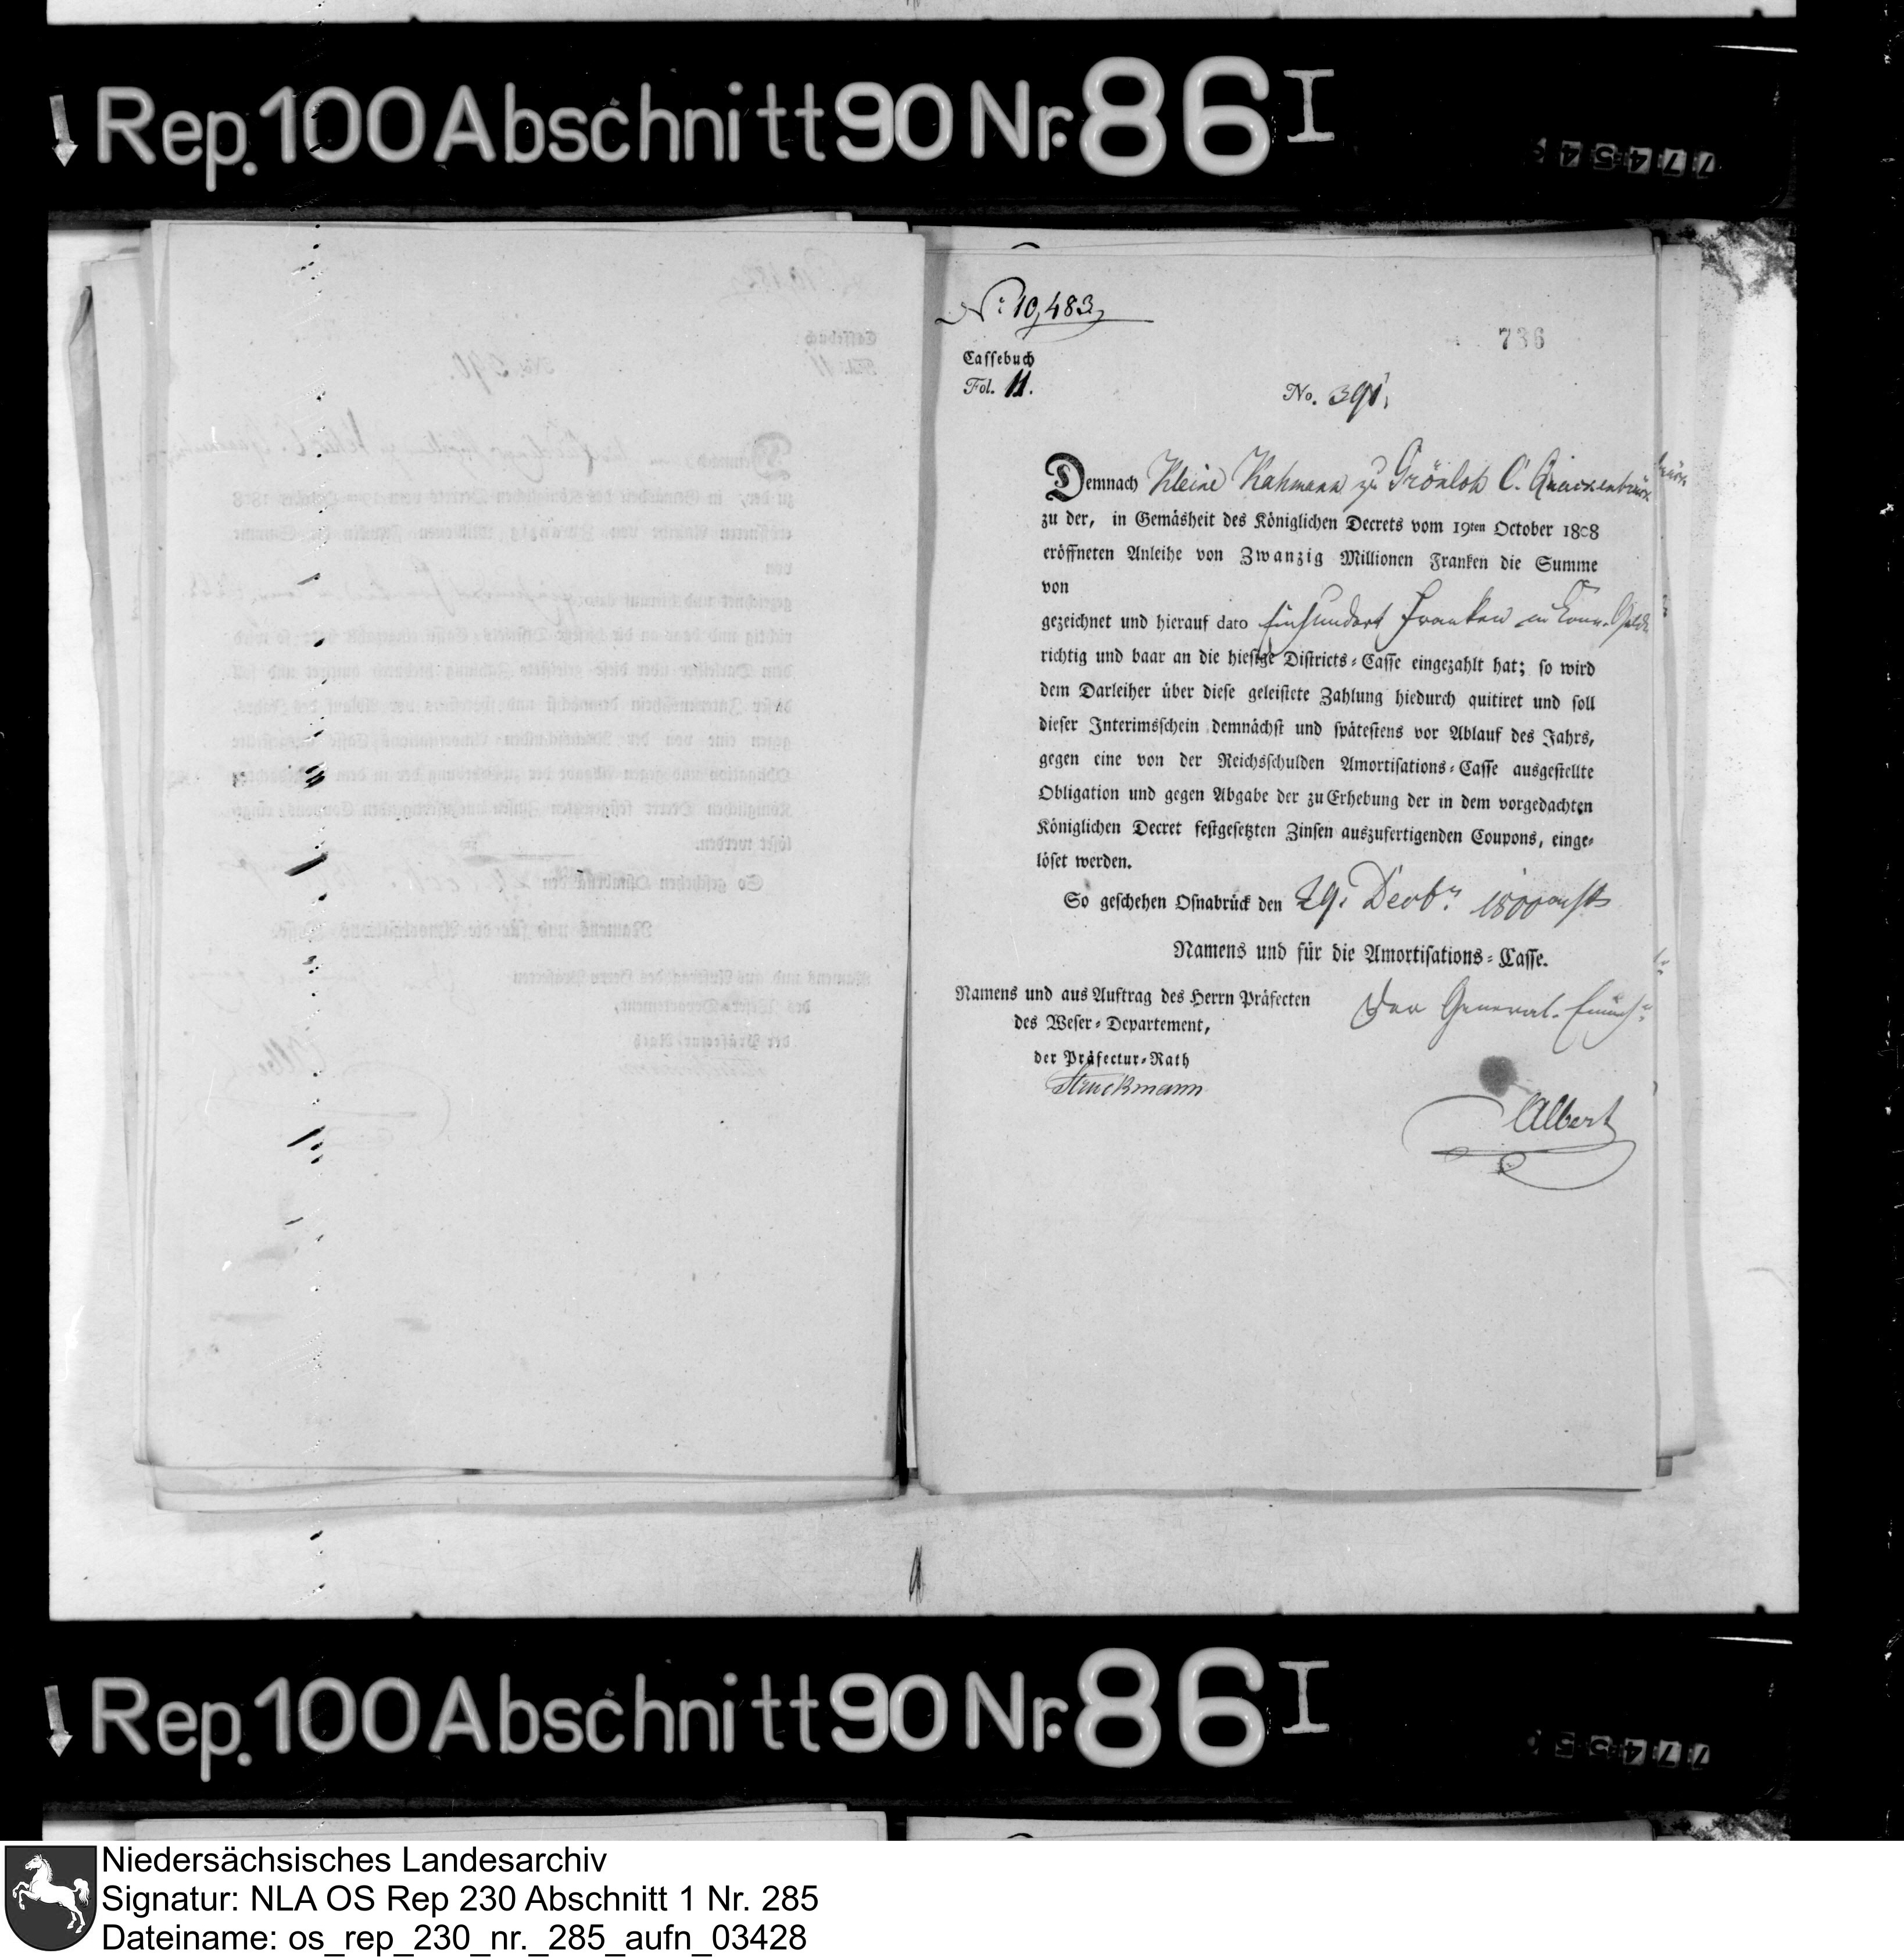 Rep. 100 Abschnitt 90 Nr. 86 I
77454
Nº 10,483,
736
Cassebuch
Fol. 11.
No. 391,
Demnach Kleine Kahmann zu Grönloh C. Quackenbrück
zu der, in Gemäsheit des Königlichen Decrets vom 19ten October 1808
eröffneten Anleihe von Zwanzig Millionen Franken die Summe
von
gezeichnet und hierauf dato Einhundert Franken in Conv. Gelde
richtig und baar an die hiesige Districts-Casse eingezahlt hat; so wird
dem Darleiher über diese geleistete Zahlung hiedurch quitiret und soll
dieser Interimsschein demnächst und spätestens vor Ablauf des Jahrs,
gegen eine von der Reichsschulden Amortisations-Casse ausgestellte
Obligation und gegen Abgabe der zu Erhebung der in dem vorgedachten
Königlichen Decret festgesetzten Zinsen auszufertigenden Coupons, einge-
löset werden.
So geschehen Osnabrück den 29. Decbr. 1800 acht
Namens und für die Amortisations-Casse.
Namens und aus Auftrag des Herrn Präfecten
des Weser-Departement,
Der General-Einneh
der Präfectur-Rath
Struckmann
Albert
Rep. 100 Abschnitt 90 Nr. 86 I
77455
Niedersächsisches Landesarchiv
Signatur: NLA OS Rep 230 Abschnitt 1 Nr. 285
Dateiname: os_rep_230_nr._285_aufn_03428